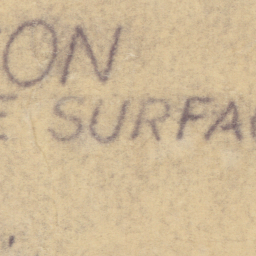 ON
E SURFA